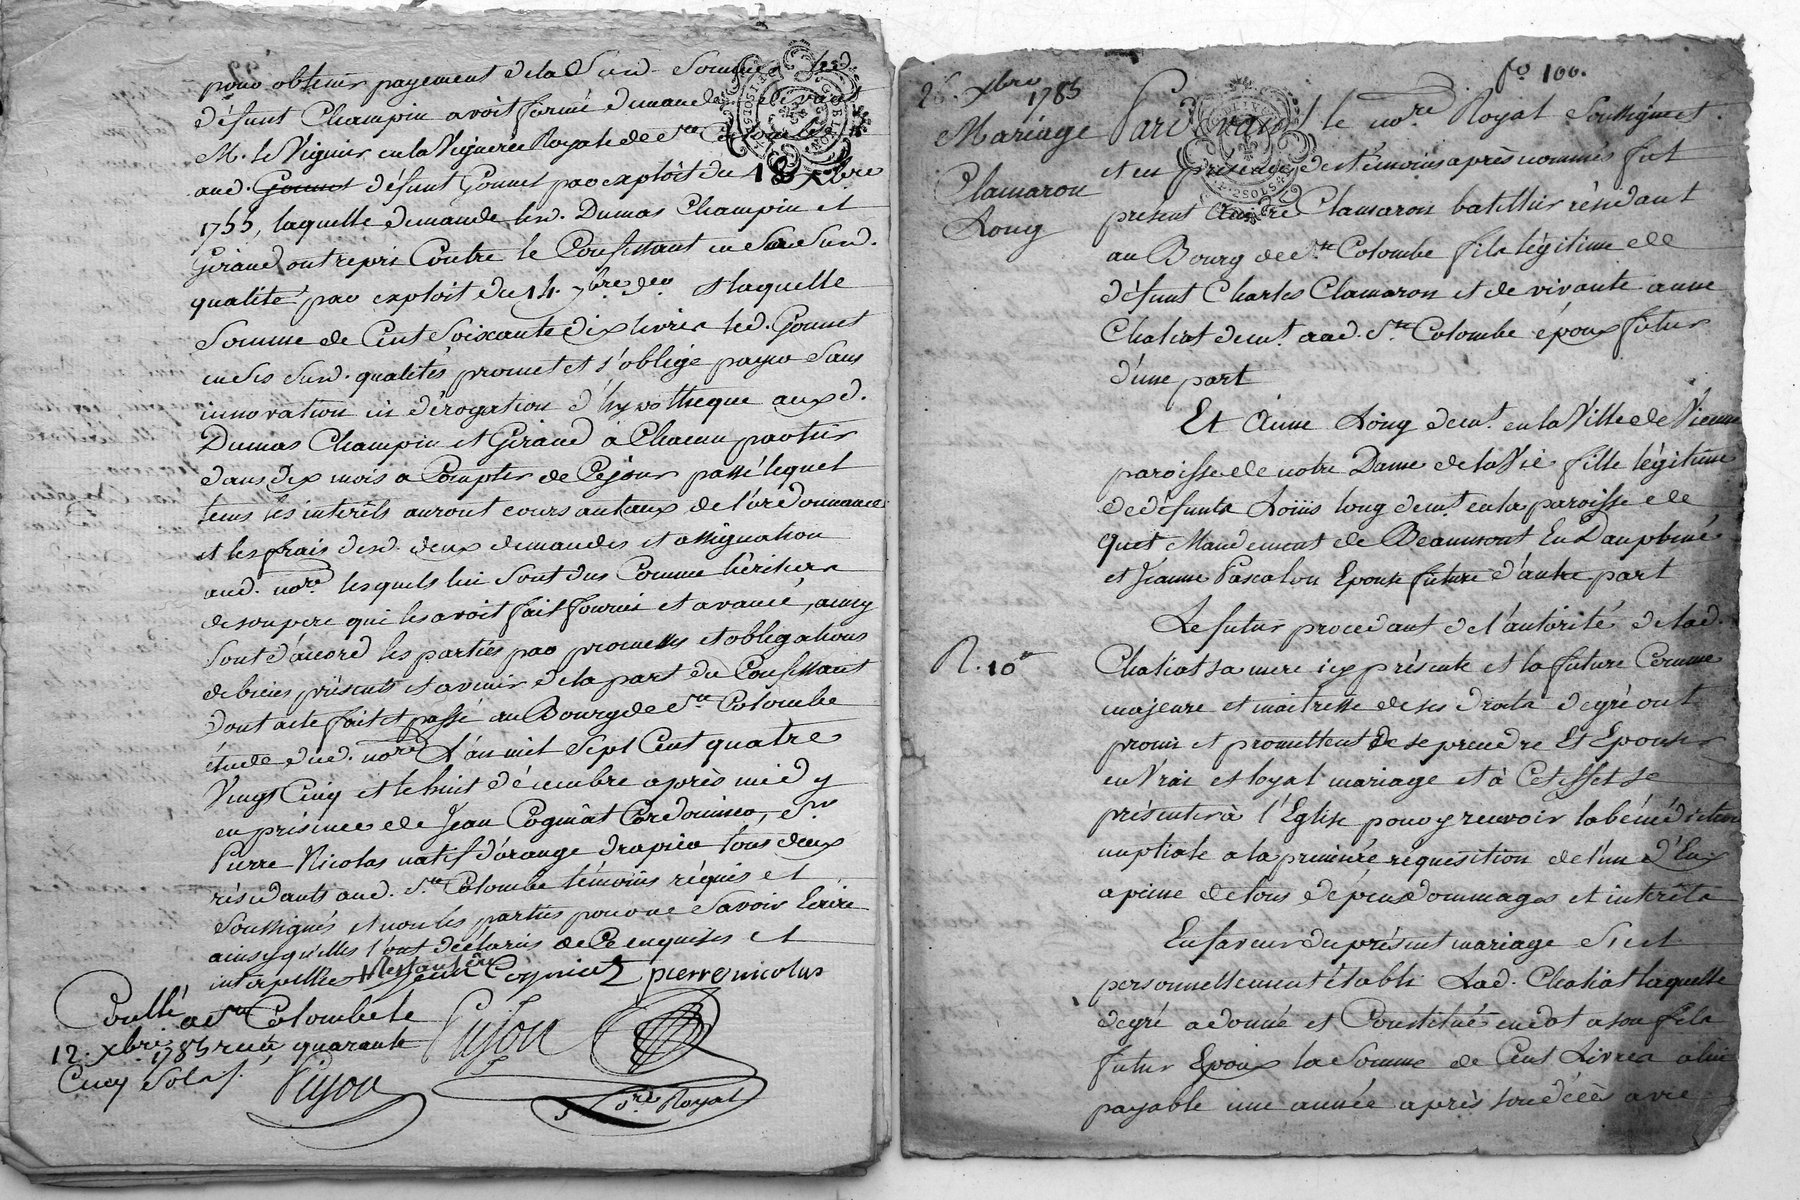 pour obtenir payement de la Susd. Somme led
défunt Champin avoit formé demande
M. le Viguier en la Viguerie Royale de Ste Colombe
aud. Gonnet défunt Gonnet par exploit du 18 Xbre
1755, laquelle demande lesd. Dumas Champin et
Giraud ont repris Contre le Confessant en Sa Susd.
qualité par exploit du 14. 7bre der et laquelle
Somme de Cent Soixante dix livres led. Gonnet
en Ses Susd. qualités promet et s'oblige payer Sans
innovation ni dérogation d'hypotheque auxd.
Dumas Champin et Giraud à Chacun par tier
dans dix mois a Compter de Cejour passé lequel
tems les interêts auront cours au taux de l'ordonnance
et les frais desd. deux demandes et assignation
aud. nore lesquels lui Sont dus Comme héritier
de son pere qui les avoit fait fournir et avancé, ainsy
Sont d'accord les parties par promesses et obligations
de biens présents et avenir de la part du Confessant
dont acte fait et passé au Bourg de Ste Colombe
étude dud. nore L'an mil Sept Cent quatre
Vingt Cinq et le huit décembre après midy
en présence de Jean Cogniat Cordonnier, Sr.
Pierre Nicolas natif d'orange drapier tous deux
résidants aud. Ste Colombe témoins réquis et
Soussignés et non les parties pour ne Savoir Ecrire
ainsy qu'elles l'ont déclaré de Ce enquises et
interpellées Jean Cogniat pierre nicolas
Conllé a Ste Colombe le
12. Xbre 1785 reçu quarante
Cinq Sols
Pijon
Pijon
Nore Royal
fo 100.
26. Xbre 1785
Mariage
Clamaron
Long
Pardevant le nore Royal Soussigné et
et en présence des témoins après nommés fut
présent André Clamaron batellier résidant
au Bourg de Ste Colombe fils légitime de
défunt Charles Clamaron et de vivante anne
Chaliat demt. aud. Ste Colombe époux futur
d'une part
Et Anne Long demt. en la Ville de Vienne
paroisse de notre Dame de la Vie fille légitime
de défunts Loüis long demt. en la paroisse de
quet Mandement de Beaumont En Dauphiné
et Jeanne Pascalon Epouse future d'autre part
Le futur procedant de l'autorité de lad.
R. 10
Chaliat sa mere icy présente et la future Comme
majeure et maitresse de ses droits de gré ont
promis et promettent de se prendre Et Epouser
en Vrai et loyal mariage et à Cet effet se
présenter à l'Eglise pour y recevoir la bénédiction
nuptiale a la premiére réquisition de l'un d'Eux
a peine de tous dépens dommages et intérêts
En faveur du présent mariage S'est
personnellement établi Lad. Chaliat laquelle
de gré a donné et Constitué en dot a son fils
futur Epoux la Somme de Cent Livres a lui
payable une année après son décès avie